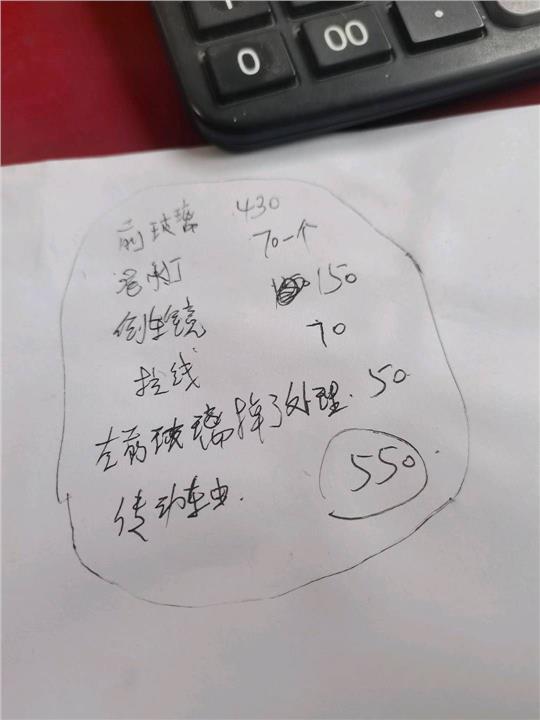 0
00
.
前玻璃 430
雾灯 70一个
倒车镜 150
拉线 70
左前玻璃掉了处理. 50
传动轴. 550